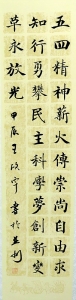 五四精神薪火傳崇尚自由求
知行勇攀民主科學夢創新變
革永放光 甲辰 王 宇 書於並州